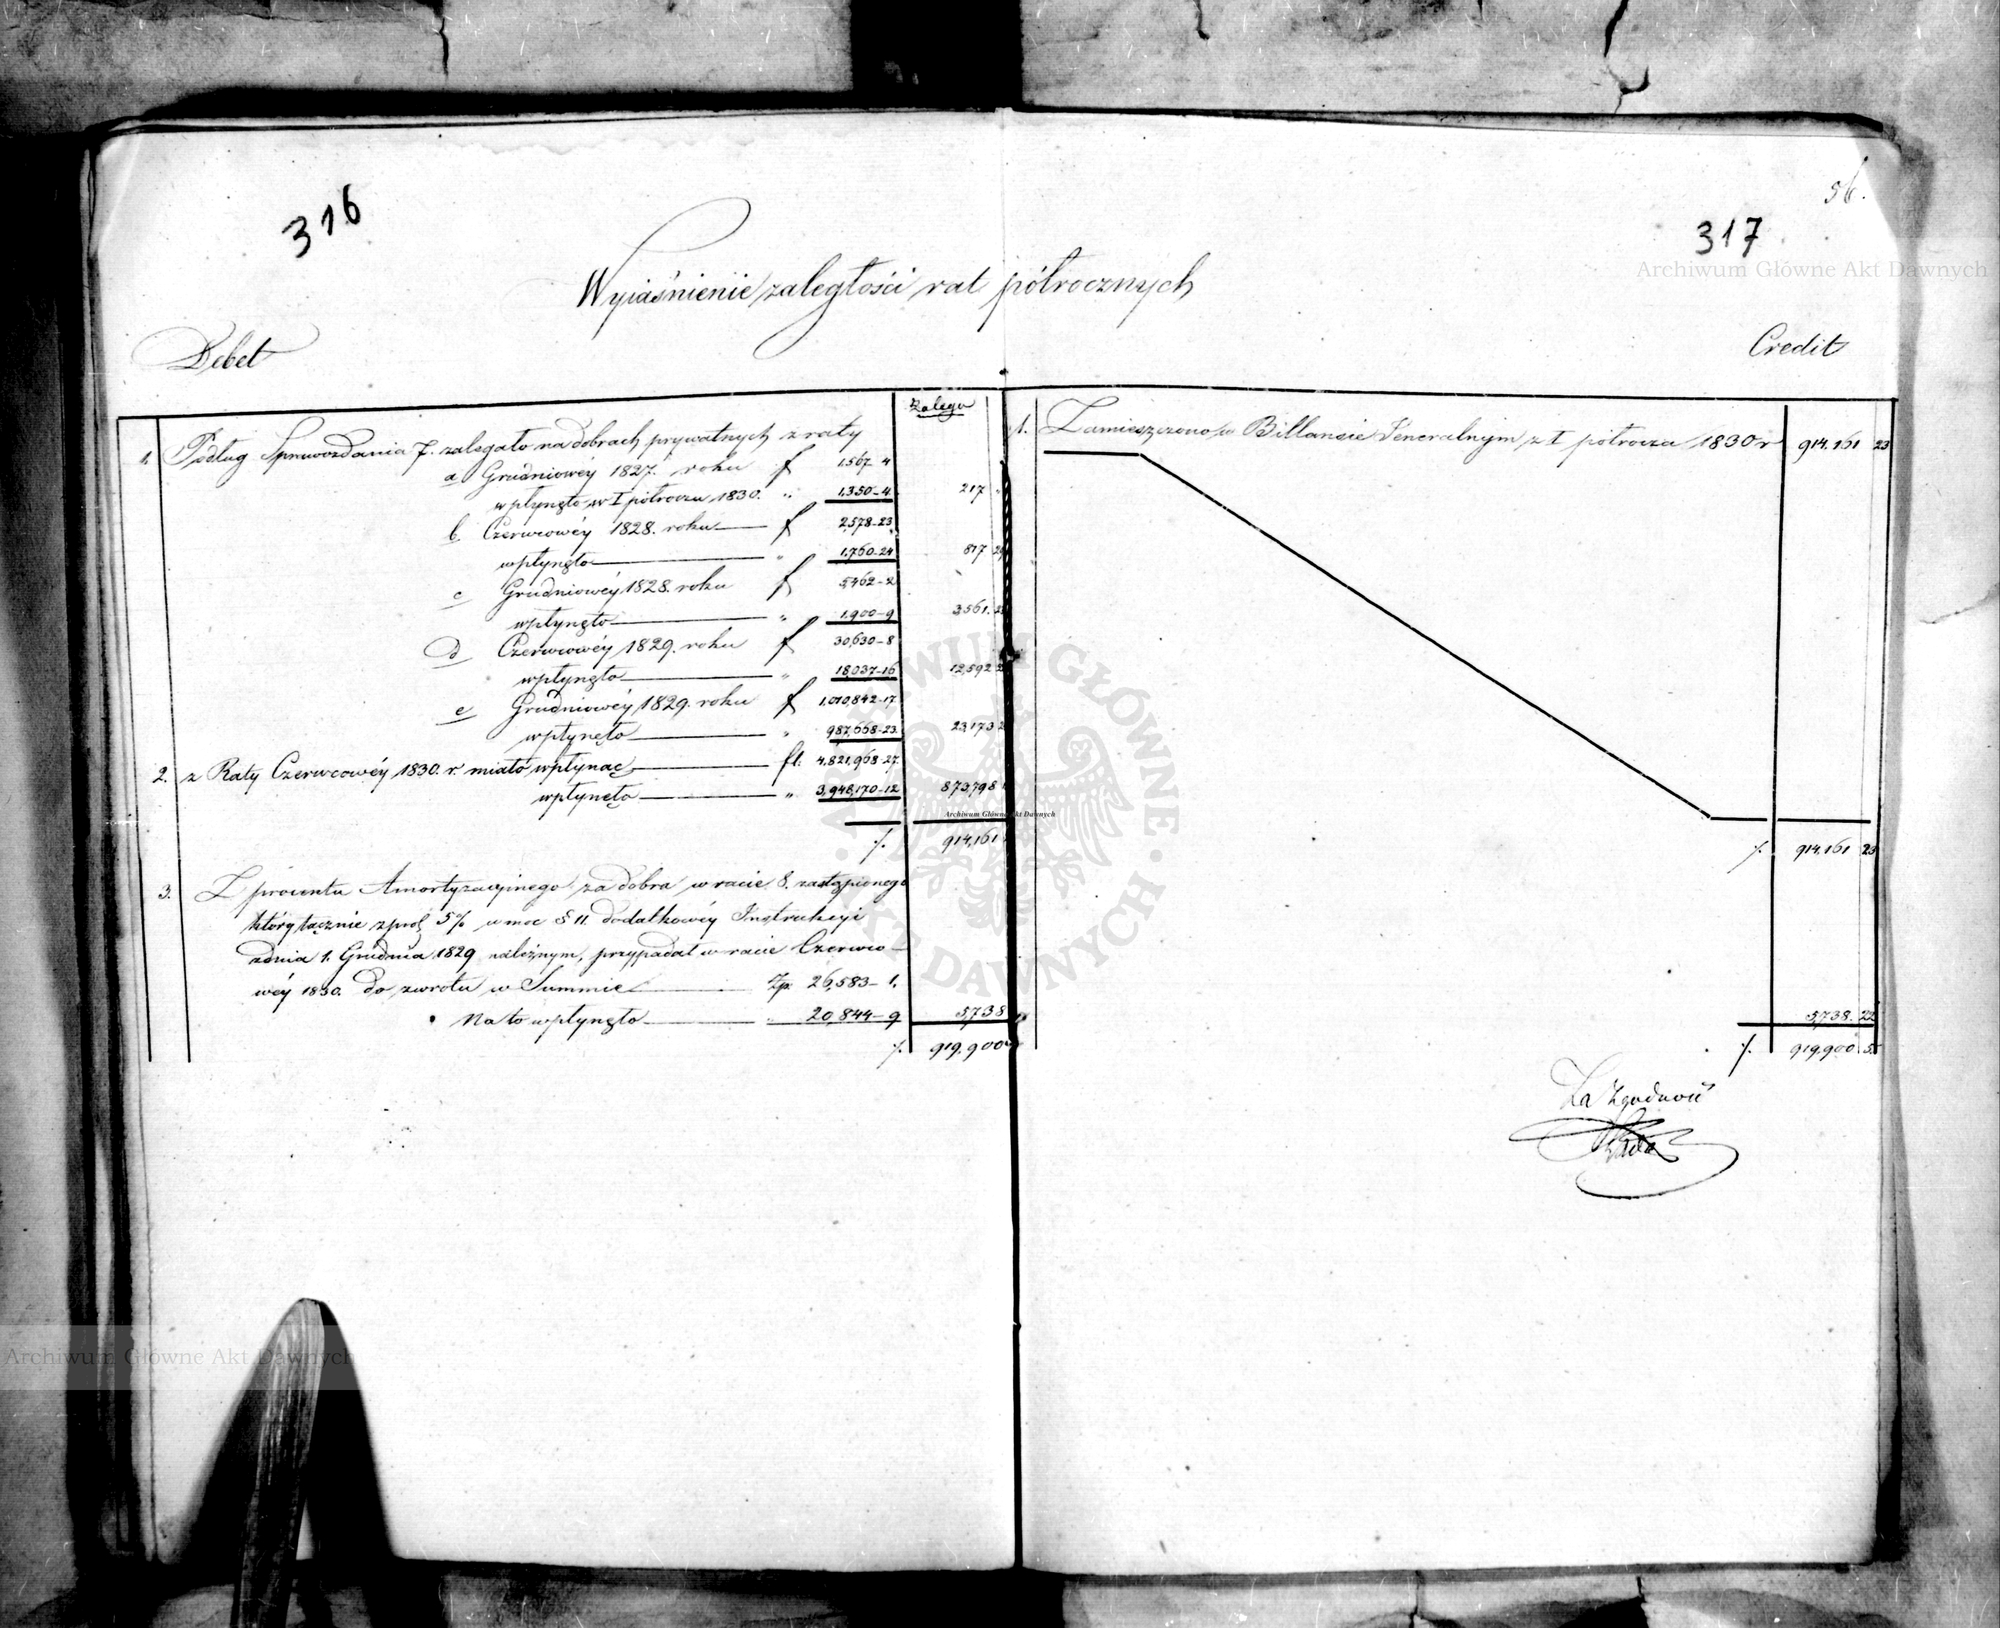 316
317
56.
Archiwum Główne Akt Dawnych
Wyiaśnienie zaległości rat półrocznych
Debet
Credit
Zalega
1. Podług Sprawozdania 7. zalegało na dobrach prywatnych z raty
a Grudniowéy 1827. roku f 1,567-4
wpłynęło w I półroczu 1830. " 1,350-4 217 "
b. Czerwcowéy 1828. roku f 2,578-23
wpłynęło " 1,760-24 817 29
c Grudniowéy 1828. roku f 5,462-2
wpłynęło " 1,900-9 3,561.
d Czerwcowéy 1829. roku f 30,630-8
wpłynęło " 18,037-16 12,592
e Grudniowéy 1829. roku f 1,010,842-17
wpłynęło " 987,668-23 23,173
2. z Raty Czerwcowéy 1830. r. miało wpłynąć fl. 4,821,968-27
wpłynęło " 3,948,170-12 873,798
Archiwum Główne Akt Dawnych
/. 914,161
3. Z procentu Amortyzacyinego za dobra w racie 8. zastąpionego
który łącznie z 5% w moc § 11. dodatkowéy Instrukcyi
z dnia 1. Grudnia 1829 przypadał w racie Czerwco-
wéy 1830. do zwrotu w Summie Zp. 26,583-1.
Na to wpłynęło " 20,844-9 5,738
/. 919,900
1. Zamieszczono w Billansie Generalnym z I półrocza 1830 r 914,161 23
/. 914,161 23
5,738. 22
/. 919,900 5.
Za Zgodność
ARCHIWUM GŁÓWNE · AKT DAWNYCH ·
Archiwum Główne Akt Dawnych